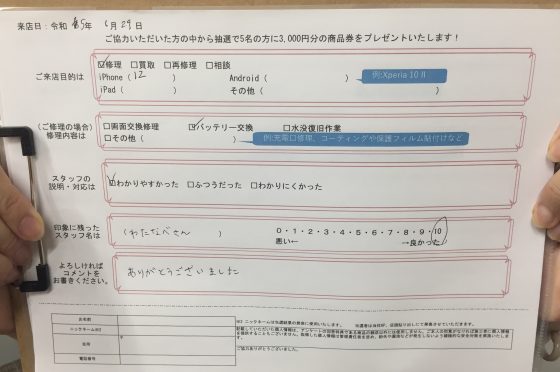 来店日：令和 5年 6月 29日
ご協力いただいた方の中から抽選で5名の方に3,000円分の商品券をプレゼントいたします！
ご来店目的は
☑修理 □買取 □再修理 □相談
iPhone ( 12 ) Android ( ) 例:Xperia 10 II
iPad ( ) その他 ( )
(ご修理の場合)
修理内容は
□画面交換修理 ☑バッテリー交換 □水没復旧作業
□その他 ( ) 例:充電口修理、コーティングや保護フィルム貼付けなど
スタッフの
説明・対応は
☑わかりやすかった □ふつうだった □わかりにくかった
印象に残った
スタッフ名は
( わたなべさん )
0・1・2・3・4・5・6・7・8・9・10
悪い← →良かった
よろしければ
コメントを
お書きください。
ありがとうございました
お名前
ニックネーム※2
住所
〒
電話番号
ご協力ありがとうございました。